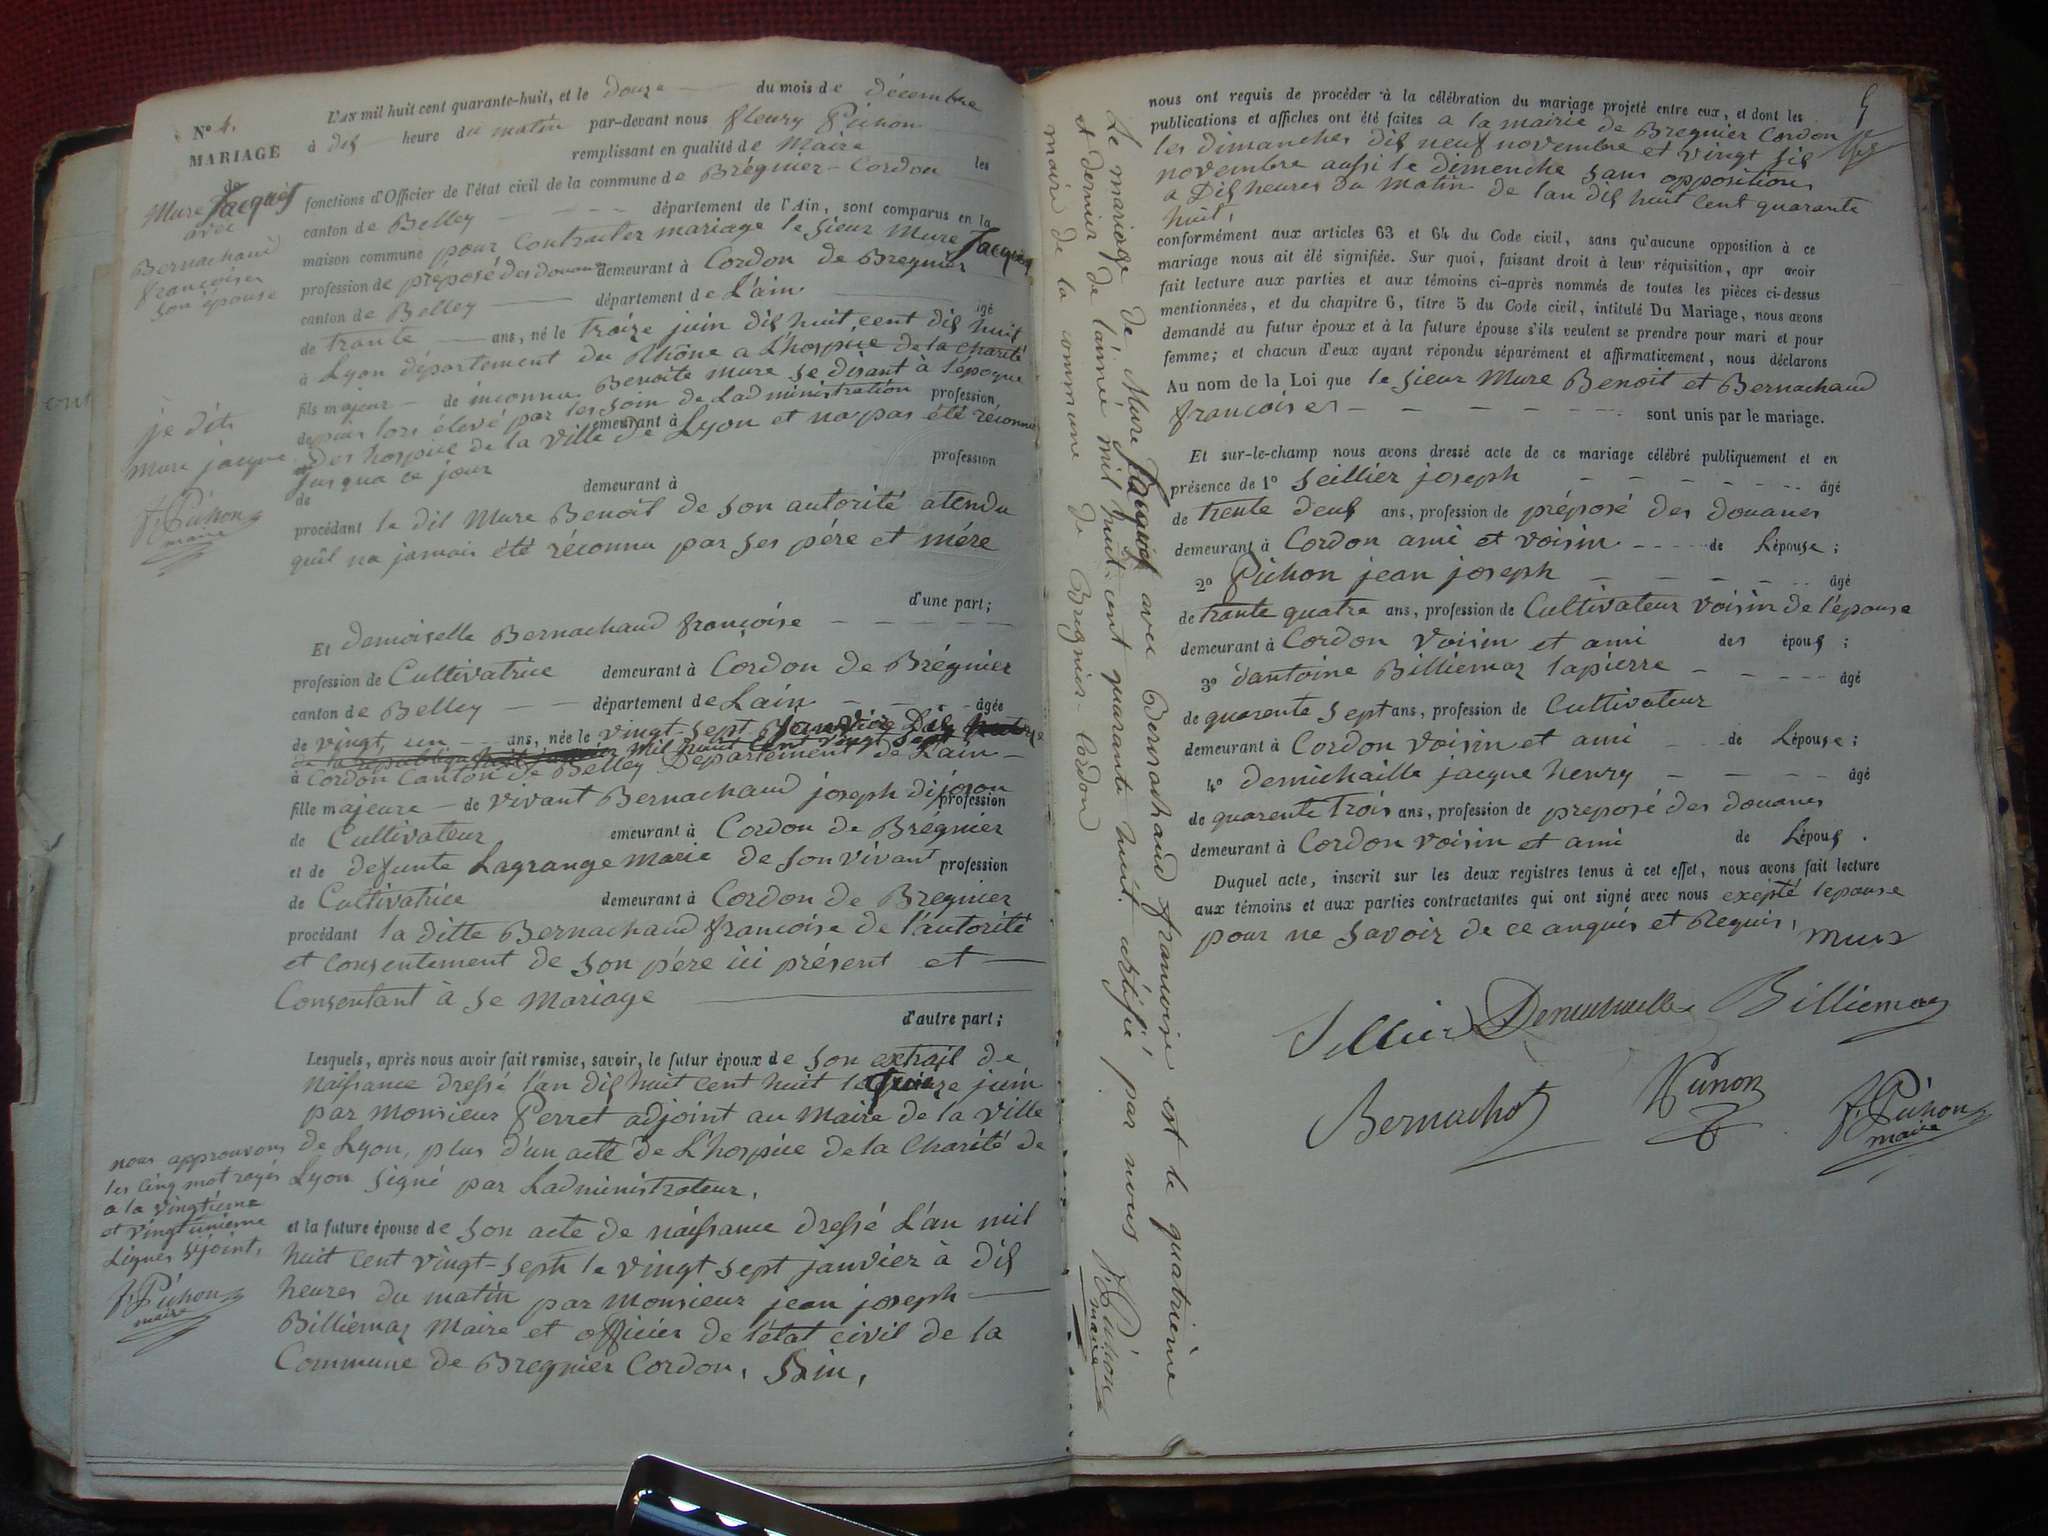 N° 4.
MARIAGE
de
Mure Jacques
avec
Bernachaud
francoises
son épouse
L'AN mil huit cent quarante-huit, et le douze du mois de décembre
à dix heure du matin par-devant nous fleury Pichon
remplissant en qualité de Maire les
fonctions d'Officier de l'état civil de la commune de Brégnier-Cordon
canton de Belley département de l'Ain, sont comparus en la
maison commune pour contracter mariage le sieur Mure Jacques
profession de préposé des douanes demeurant à Cordon de Bregnier
canton de Belley département de L'ain âgé
de trante ans, né le treize juin dix huit cent dix huit
à Lyon département du Rhône a L'hospice de la charité
fils majeur de inconnu Benoite mure se disant à l'époque
depuis lors élevé par les soin de Ladministration profession,
des hospice de la ville de emeurant à Lyon et na pas été réconnu
jusqua ce jour profession
de demeurant à
procédant le dit Mure Benoit de son autorité atendu
quil na jamais été réconnu par ses pére et mére
d'une part;
je dits
mure jacque
f. Pichon
maire
Et demoiselle Bernachaud françoise
profession de Cultivatrice demeurant à Cordon de Brégnier
canton de Belley département de Lain âgée
de vingt un ans, née le vingt-sept Janvier Dix
mil huit cent vingt sept
à Cordon Canton de Belley Département de Lain
fille majeure de vivant Bernachaud joseph dijoson profession
de Cultivateur emeurant à Cordon de Brégnier
et de defunte Lagrange Marie de son vivant profession
de Cultivatrice demeurant à Cordon de Bregnier
procédant la ditte Bernachaud francoise de l'autorité
et consentement de son pére ici présent et
Consentant à se Mariage
d'autre part;
Lesquels, après nous avoir fait remise, savoir, le futur époux de son extrait de
naissance dressé l'an dix huit cent huit le treize juin
par Monsieur Perret adjoint au Maire de la ville
de Lyon, plus d'un acte de L'hospice de la Charité de
Lyon signé par Ladministrateur.
et la future épouse de son acte de naissance dressé L'an mil
huit cent vingt-septh le vingt sept janvier à dix
heures du matin par Monsieur jean joseph
Billiemaz Maire et officier de létat civil de la
Commune de Bregnier Cordon, Ain,
nous approuvons
les cinq mot rayés
a la vingtième
et vingtunième
Lignes cijoint,
f. Pichon
maire
Le mariage de Mure Jacques avec Bernachaud francoise est le quatrième
et dernier de lannée mil huit cent quarante huit. clôturé par nous
maire de la commune de Bregnier-Cordon
f. Pichon
maire
5
nous ont requis de procéder à la célébration du mariage projeté entre eux, et dont les
publications et affiches ont été faites a la mairie de Bregnier Cordon
les dimanches dix neuf novembre et vingt six
novembre aussi le dimenche sans oppositions
a Dix heures du Matin de lan dix huit Cent quarante
huit,
conformément aux articles 63 et 64 du Code civil, sans qu'aucune opposition à ce
mariage nous ait été signifiée. Sur quoi, faisant droit à leur réquisition, apr avoir
fait lecture aux parties et aux témoins ci-après nommés de toutes les pièces ci-dessus
mentionnées, et du chapitre 6, titre 5 du Code civil, intitulé Du Mariage, nous avons
demandé au futur époux et à la future épouse s'ils veulent se prendre pour mari et pour
femme; et chacun d'eux ayant répondu séparément et affirmativement, nous déclarons
Au nom de la Loi que le sieur Mure Benoit et Bernachaud
francoises sont unis par le mariage.
Et sur-le-champ nous avons dressé acte de ce mariage célébré publiquement et en
présence de 1° Seillier joseph âgé
de trente deux ans, profession de préposé des douanes
demeurant à Cordon ami et voisin de Lépouse;
2° Pichon jean joseph âgé
de trante quatre ans, profession de Cultivateur voisin de l'épouse
demeurant à Cordon Voisin et ami des époux;
3° dantoine Billiemaz lapierre âgé
de quarente sept ans, profession de Cultivateur
demeurant à Cordon voisin et ami de Lépouse;
4° demichaille jacque henry âgé
de quarente trois ans, profession de preposé des douanes
demeurant à Cordon voisin et ami de Lépoux.
Duquel acte, inscrit sur les deux registres tenus à cet effet, nous avons fait lecture
aux témoins et aux parties contractantes qui ont signé avec nous exepté lepouse
pour ne savoir de ce anquis et Requis,
Mure
Billiemaz
Bernachot
Pichon
f. Pichon
maire